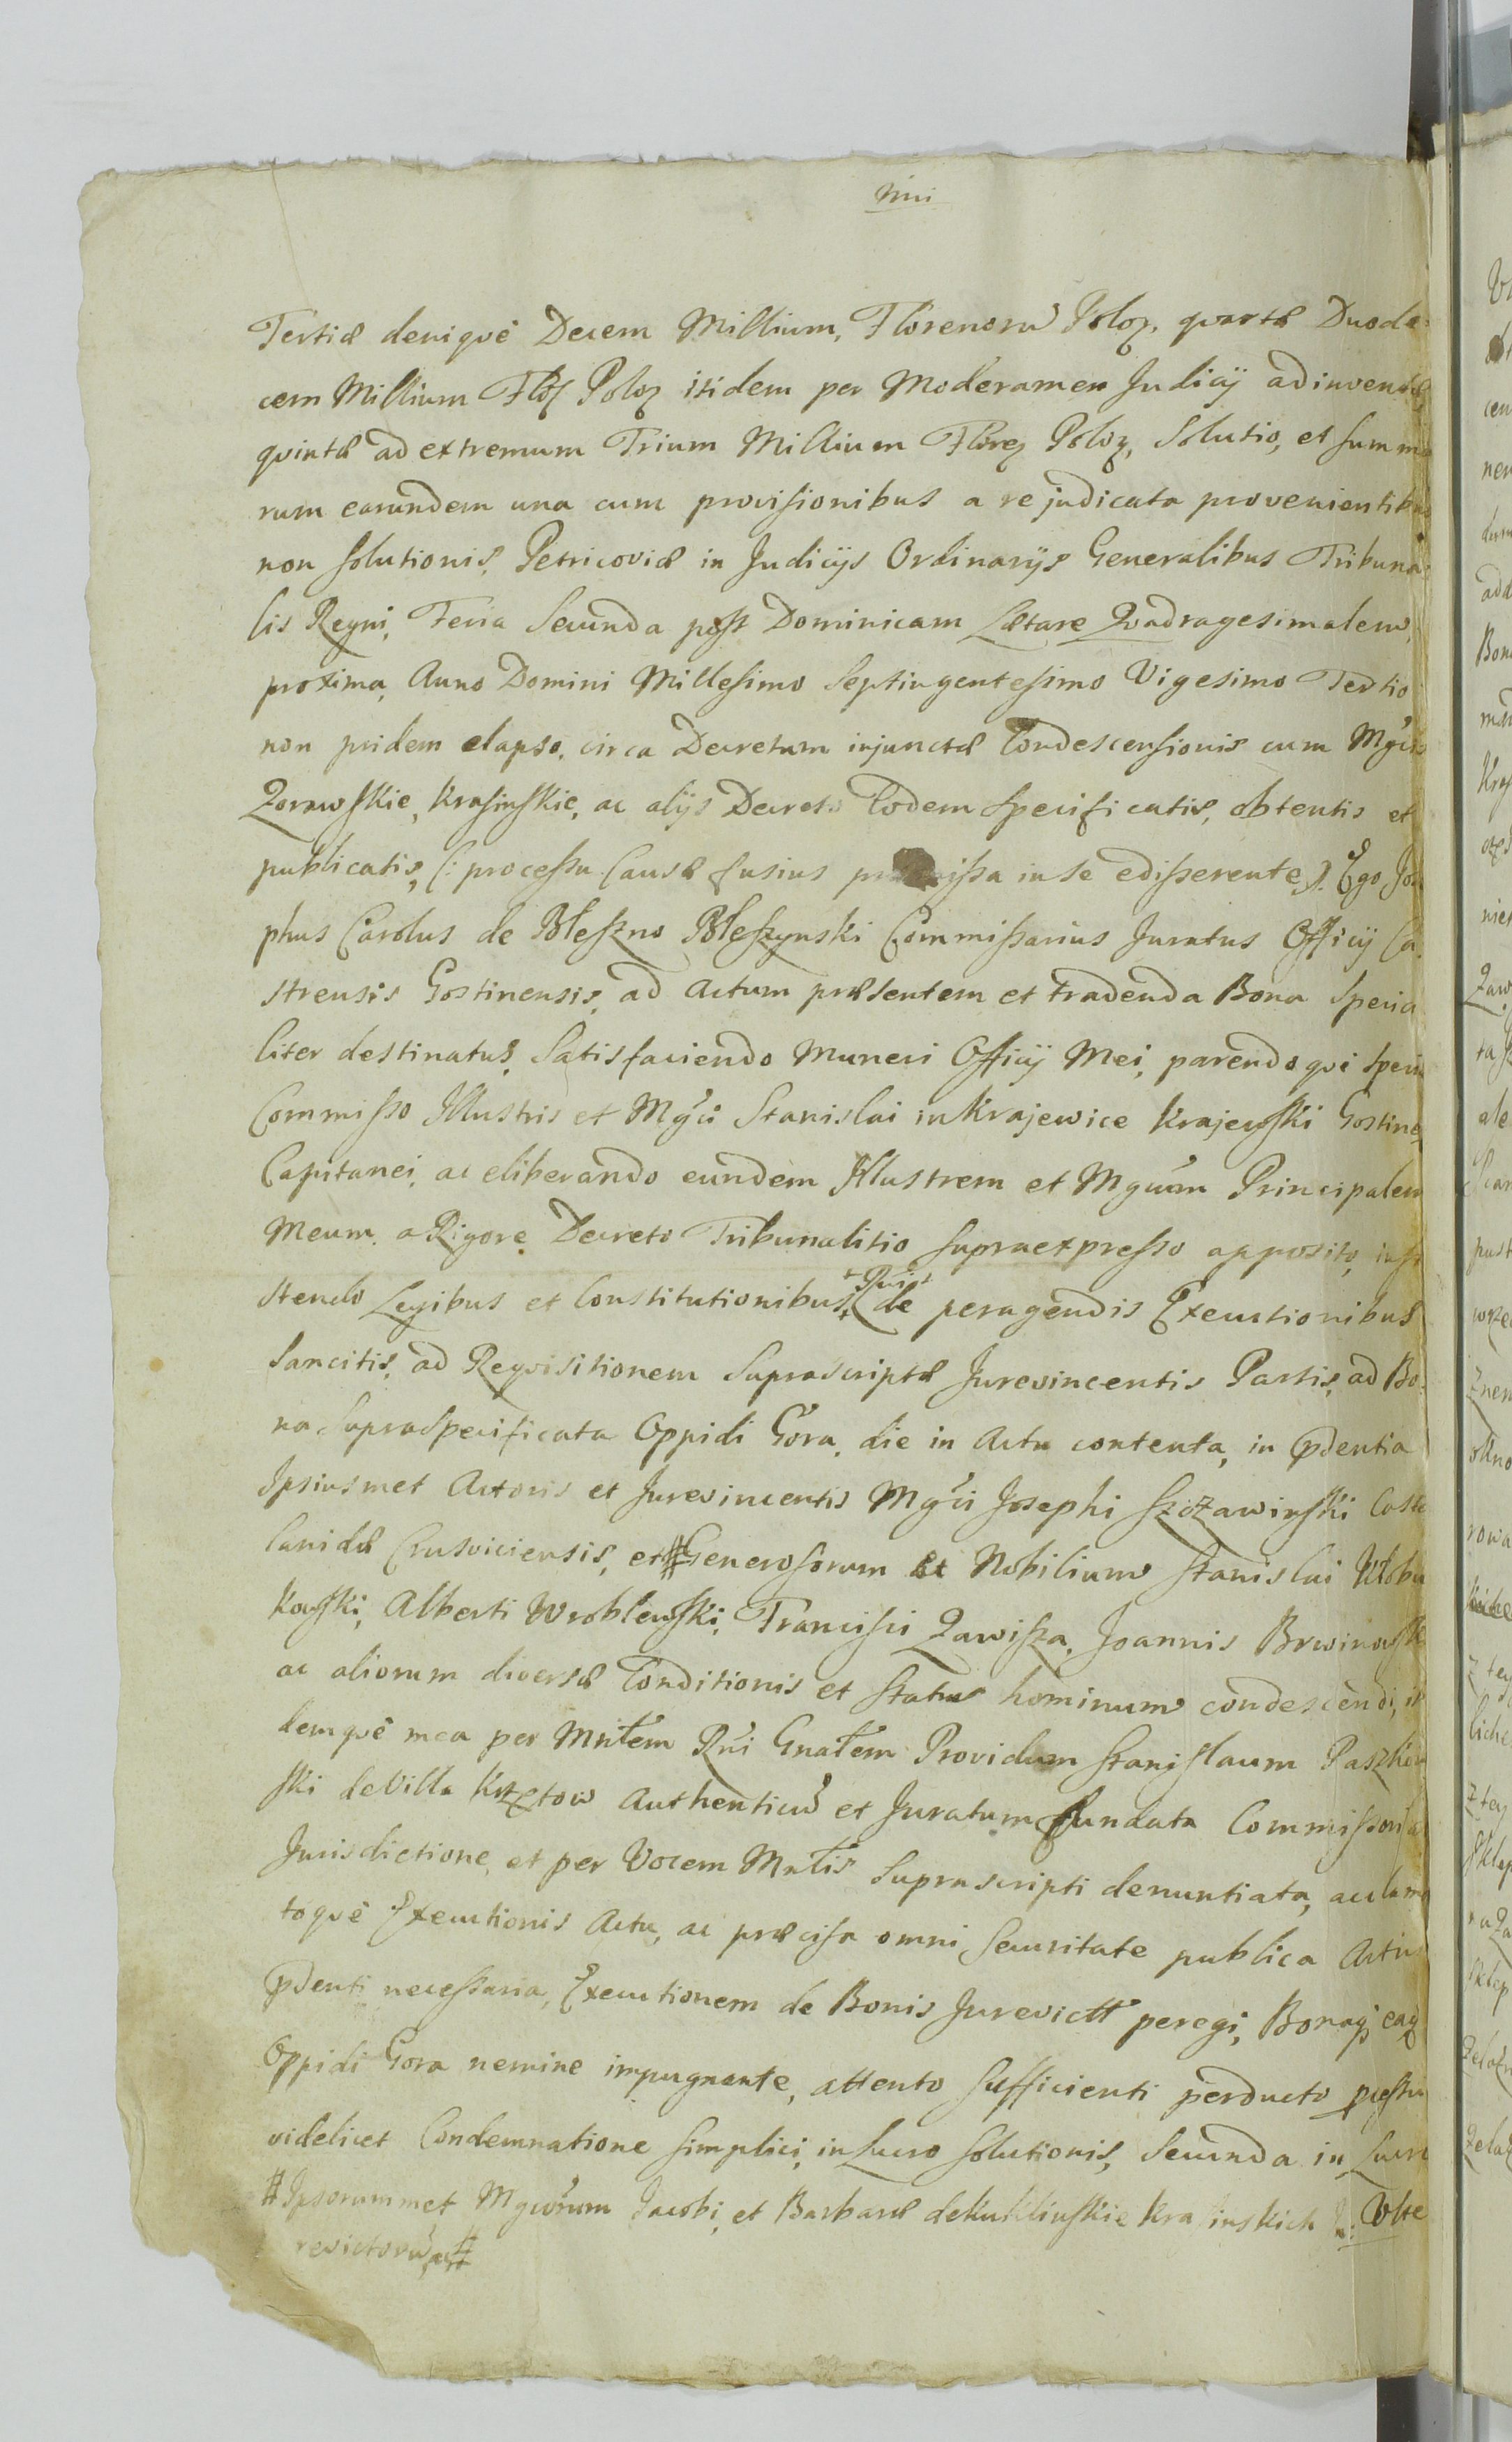 nni
Tertiæ deniquè Decem Millium, Florenorũ Poloz, quartæ Duode-
cem Millium Floz Poloz itidem per Moderamen Judicij adinventæ
quintæ ad extremum Trium Millium Florez Poloz, Solutio, et Summa
rum earundem una cum provisionibus a re judicata provenientibus
non solutionis, Petricoviæ in Judicijs Ordinarijs Generalibus Tribuna
lis Regni, Feria Secunda post Dominicam Lætare Quadragesimalem,
proxima, Anno Domini Millesimo Septingentesimo Vigesimo Tertio
non pridem elapso, circa Decretum injunctæ Condescensionis cum Mgcis
Zorawskie, Krasinskie, ac alijs Decreto Eodem specificatis, obtentis et
publicatis, (: processu Causæ fusius præmissa in se edisserente :). Ego Jose
phus Carolus de Bleszno Bleszynski Commissarius Juratus Officij Ca-
strensis Gostinensis, ad Actum præsentem et tradenda Bona Specia
liter destinatus, Satisfaciendo Muneri Officij Mei, parendo qve Speci
Commisso Illustris et Mgci Stanislai in Krajewice Krajewski Gostinen
Capitanei, ac eliberando eundem Illustrem et Mgcum Principalem
Meum, a Rigore Decreto Tribunalitio supraexpresso apposito, insi
stendo Legibus et Constitutionibus + Rni + de peragendis Executionibus
Sancitis, ad Reqvisitionem Suprascriptæ Jurevincentis Partis, ad Bo-
na Supraspecificata Oppidi Gora, die in Actu contenta, in pñdentia
Ipsiusmet Actoris et Jurevincentis Mgci Josephi Szczawinski Caste
lanidæ Crusviciensis, et # Generosorum et Nobilium Stanislai Klobu
kowski, Alberti Wroblewski, Francisci Zawisza, Joannis Brwinowsk
ac aliorum diversæ Conditionis et Status hominum condescendi, i
demqvè mea per Mnr̃lem Rñi Gnãlem Providum Stanislaum Paszkie
ski de Villa Krzętow Authenticũ et Juratum fundata Commissoria
Jurisdictione, et per Vocem Mnr̃lis Suprascripti denuntiata, acclama
toqvè Executionis Actu, ac præcisa omni Securitate publica Actui
pñdenti necessaria, Executionem de Bonis Jurevictt peregi, Bonaqz eaq
Oppidi Gora nemine impugnante, attento Sufficienti perducto pcessu
videlicet Condemnatione simplici, in Lucro solutionis, Secunda in Lucr
# Ipsorummet Mgcorum Jacobi, et Barbaræ de Kuklinskie Krasinskich Ju:
revictorũ, ac #
Ulte